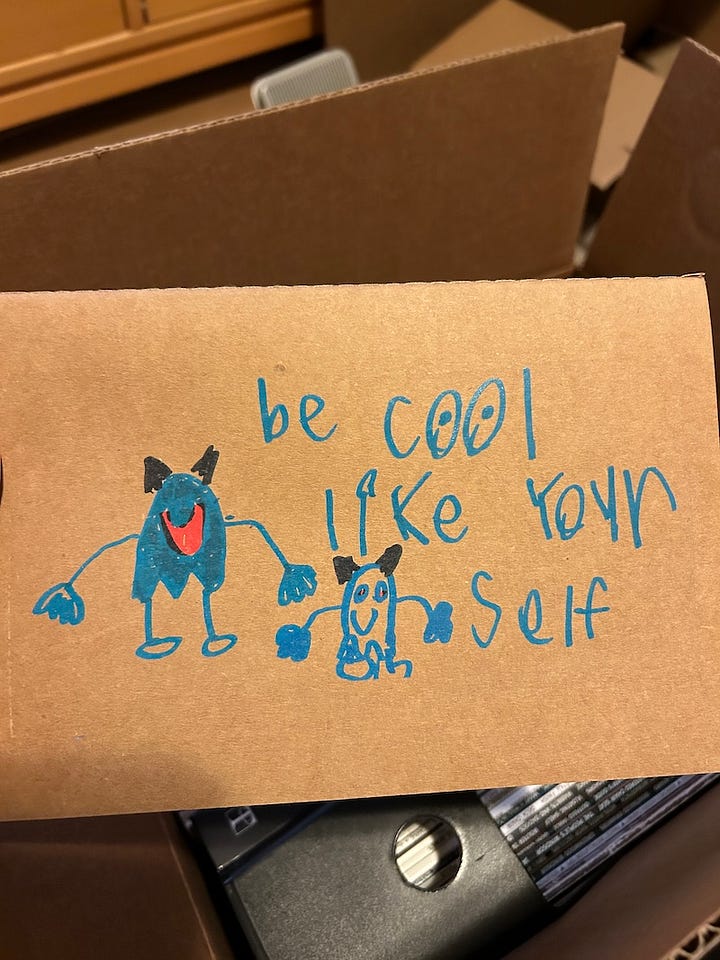 be cool
like your
self